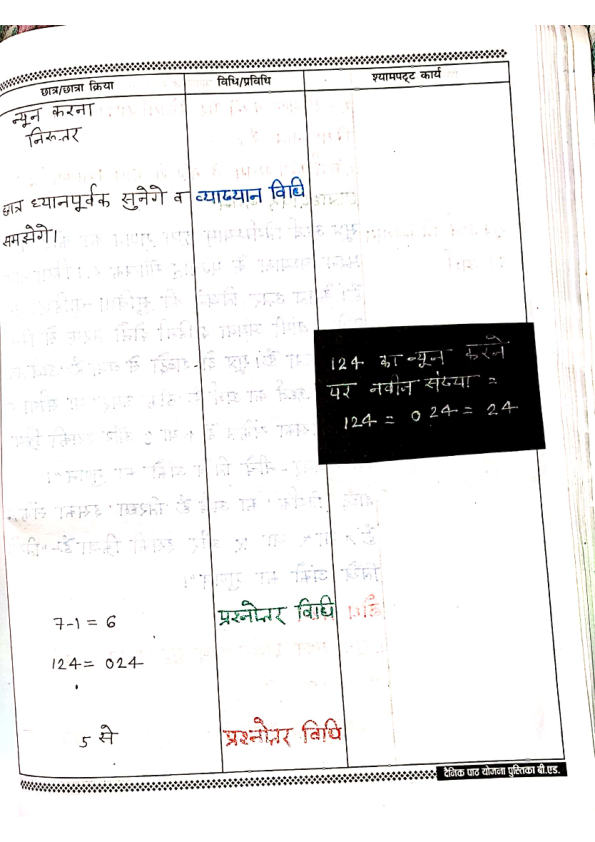 छात्र/छात्रा क्रिया
विधि/प्रविधि
श्यामपट्ट कार्य
न्यून करना
निरूत्तर
छात्र ध्यानपूर्वक सुनेगे व
व्याख्यान विधि
समझेगे।
124 का न्यून करने
पर नवीन संख्या =
124 = 024 = 24
7-1 = 6
प्रश्नोत्तर विधि
124 = 024
5 से
प्रश्नोत्तर विधि
दैनिक पाठ योजना पुस्तिका बी.एड.